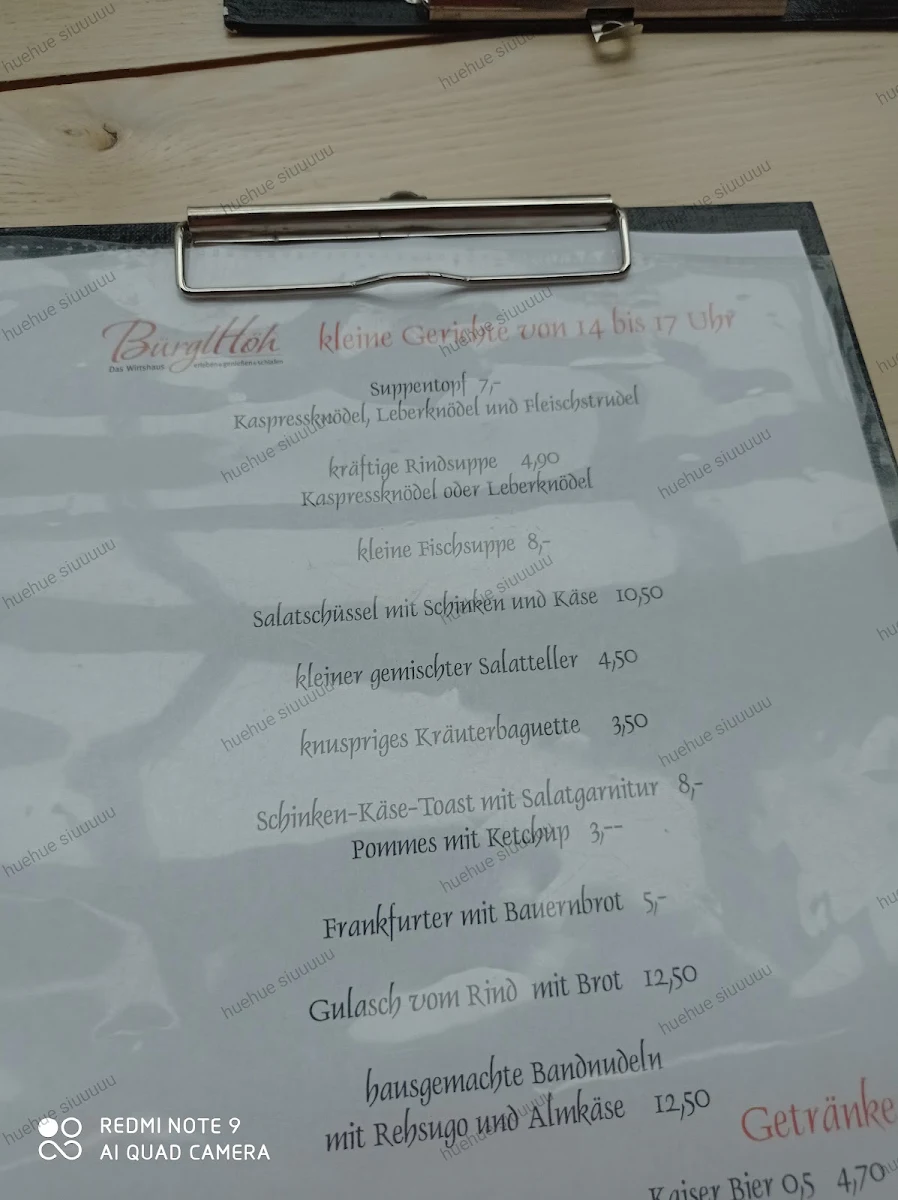 BurglHöh
Das Wirtshaus
kleine Gerichte von 14 bis 17 Uhr
Suppentopf 7,-
Kaspressknödel, Leberknödel und Fleischstrudel
kräftige Rindsuppe 4,90
Kaspressknödel oder Leberknödel
kleine Fischsuppe 8,-
Salatschüssel mit Schinken und Käse 10,50
kleiner gemischter Salatteller 4,50
knuspriges Kräuterbaguette 3,50
Schinken-Käse-Toast mit Salatgarnitur 8,-
Pommes mit Ketchup 3,--
Frankfurter mit Bauernbrot 5,-
Gulasch vom Rind mit Brot 12,50
hausgemachte Bandnudeln
mit Rehsugo und Almkäse 12,50
Getränke
Kaiser Bier 0,5 4,70
REDMI NOTE 9
AI QUAD CAMERA
huehue siuuuuu